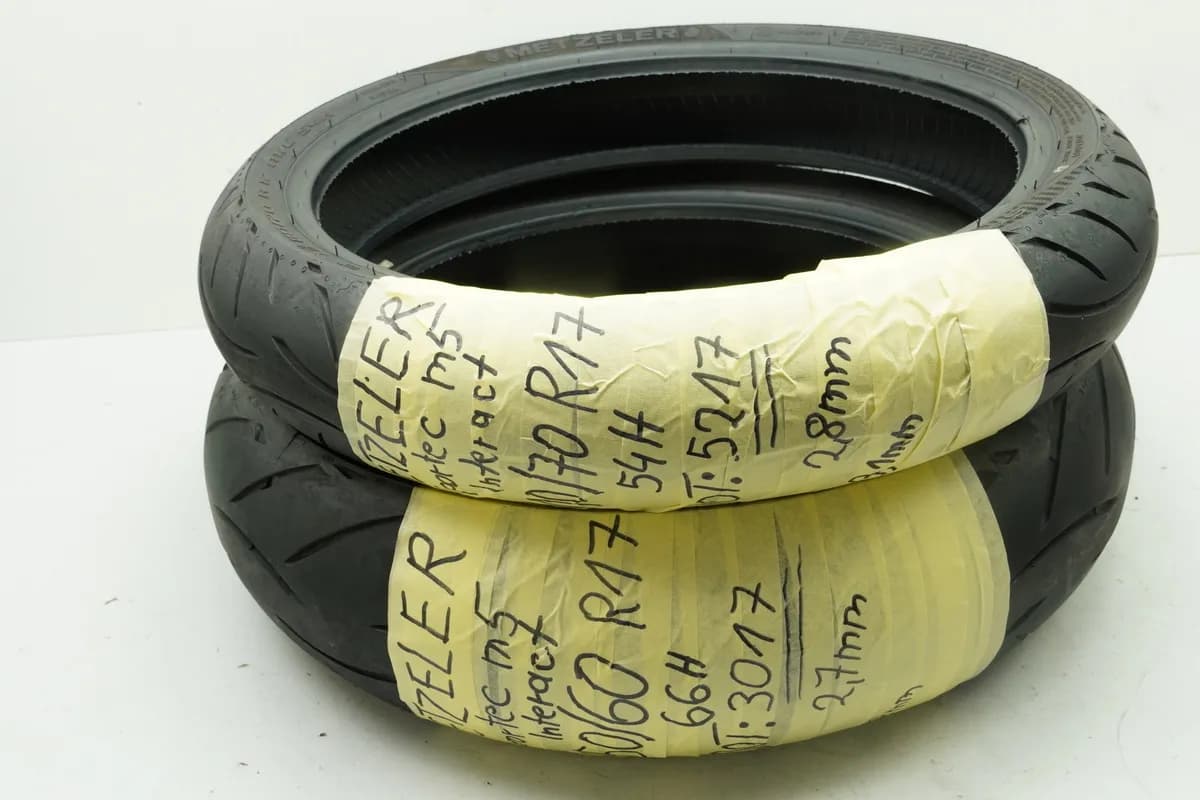 METZELER
TZELER
ortec m5
Interact
/70 R17
54H
DT: 5217
2,8mm
3,1mm
TZELER
rtec m5
Interact
50/60 R17
66H
OT: 3017
2,7mm
mm